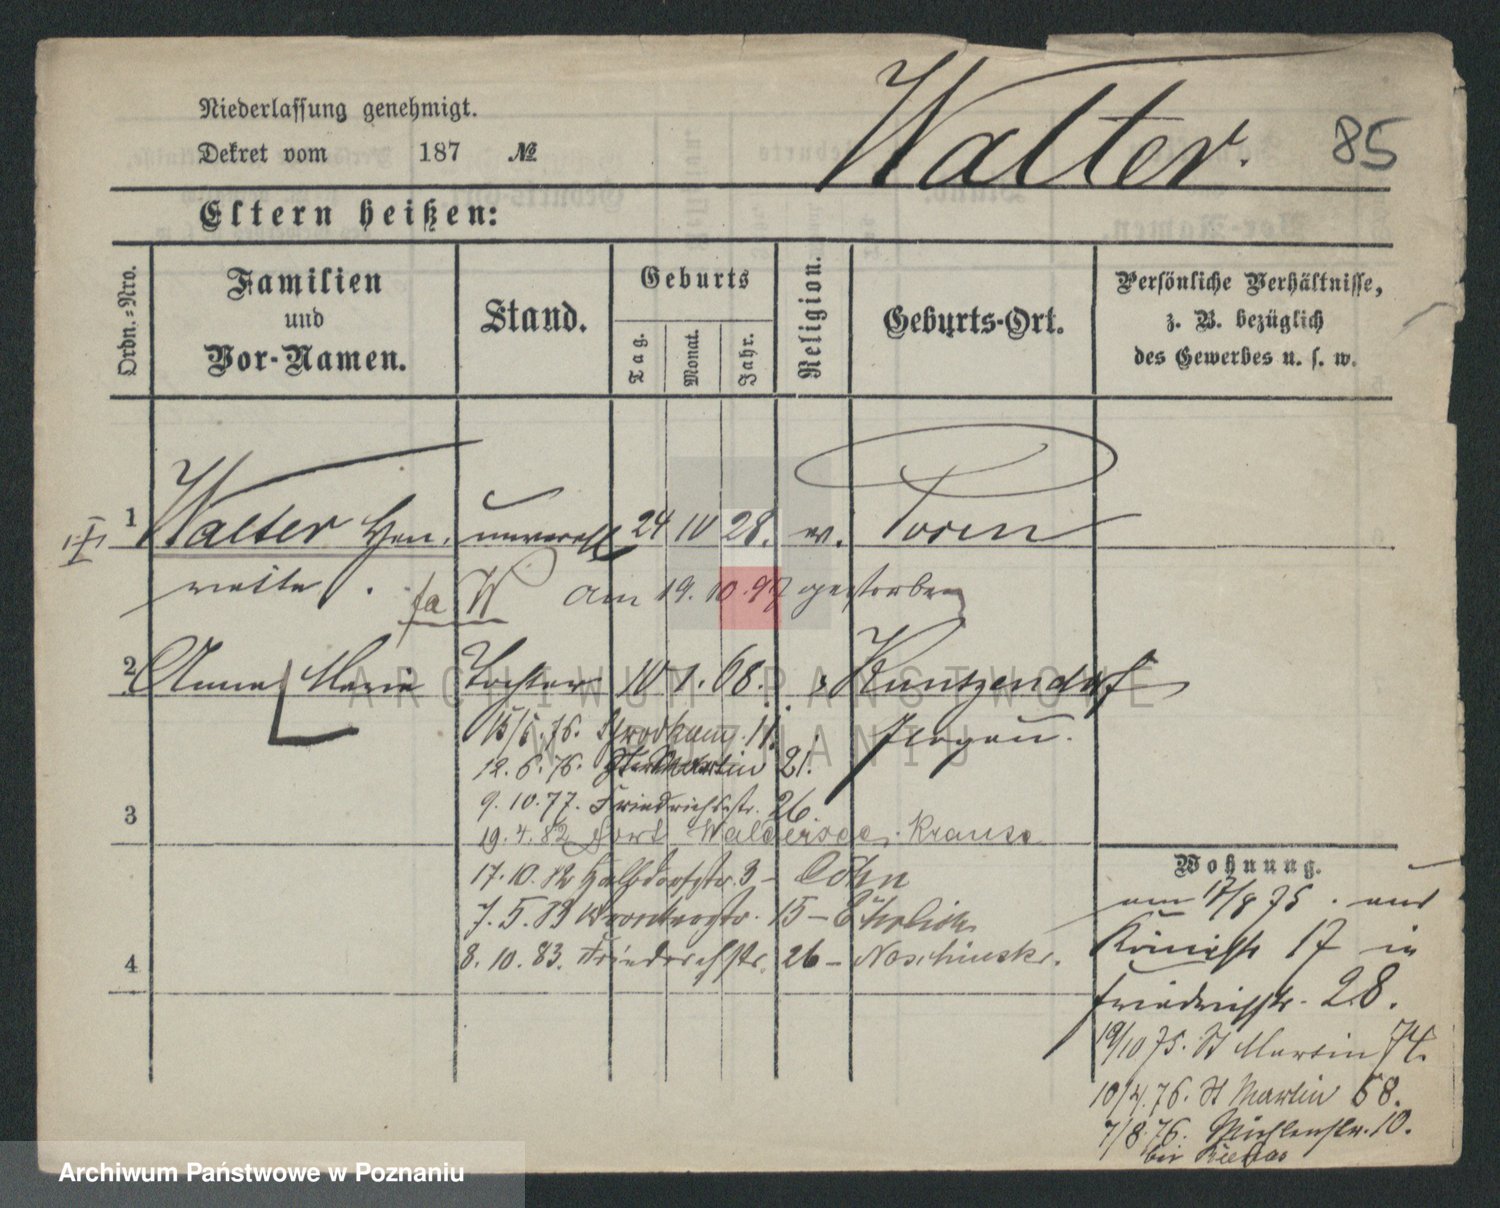 Niederlassung genehmigt.
Dekret vom 187 №
Walter.
85
Eltern heißen:
Ordn.=Nro.
Familien
und
Vor-Namen.
Stand.
Geburts
Tag.
Monat.
Jahr.
Religion.
Geburts-Ort.
Persönliche Verhältnisse,
z. B. bezüglich
des Gewerbes u. s. w.
1 Walter Hen- unverehl 24 10 28. ev. Posen
riette. am 19. 10. 97 gestorben
2 Anna Marie Tochter 10 1. 68. Kuntzendorf
Glogau.
15/5. 76. 11.
12. 6. 76. 21.
9. 10. 77. Friedrichstr. 26.
3
19. 4. 82 Fort Waldersee. Krause
17. 10. 82 Halbdorfstr. 3 - Cohn
7. 5. 83 15 - Ehrlich
4
8. 10. 83. Friedrichstr. 26 -
Wohnung.
am 17/8 75. aus
Königstr 17 in
Friedrichstr. 28.
19/10 75. St Martin 74.
10/4. 76. St Martin 58.
7/8. 76. Mühlenstr. 10.
bei
ARCHIWUM PAŃSTWOWE
W POZNANIU
Archiwum Państwowe w Poznaniu